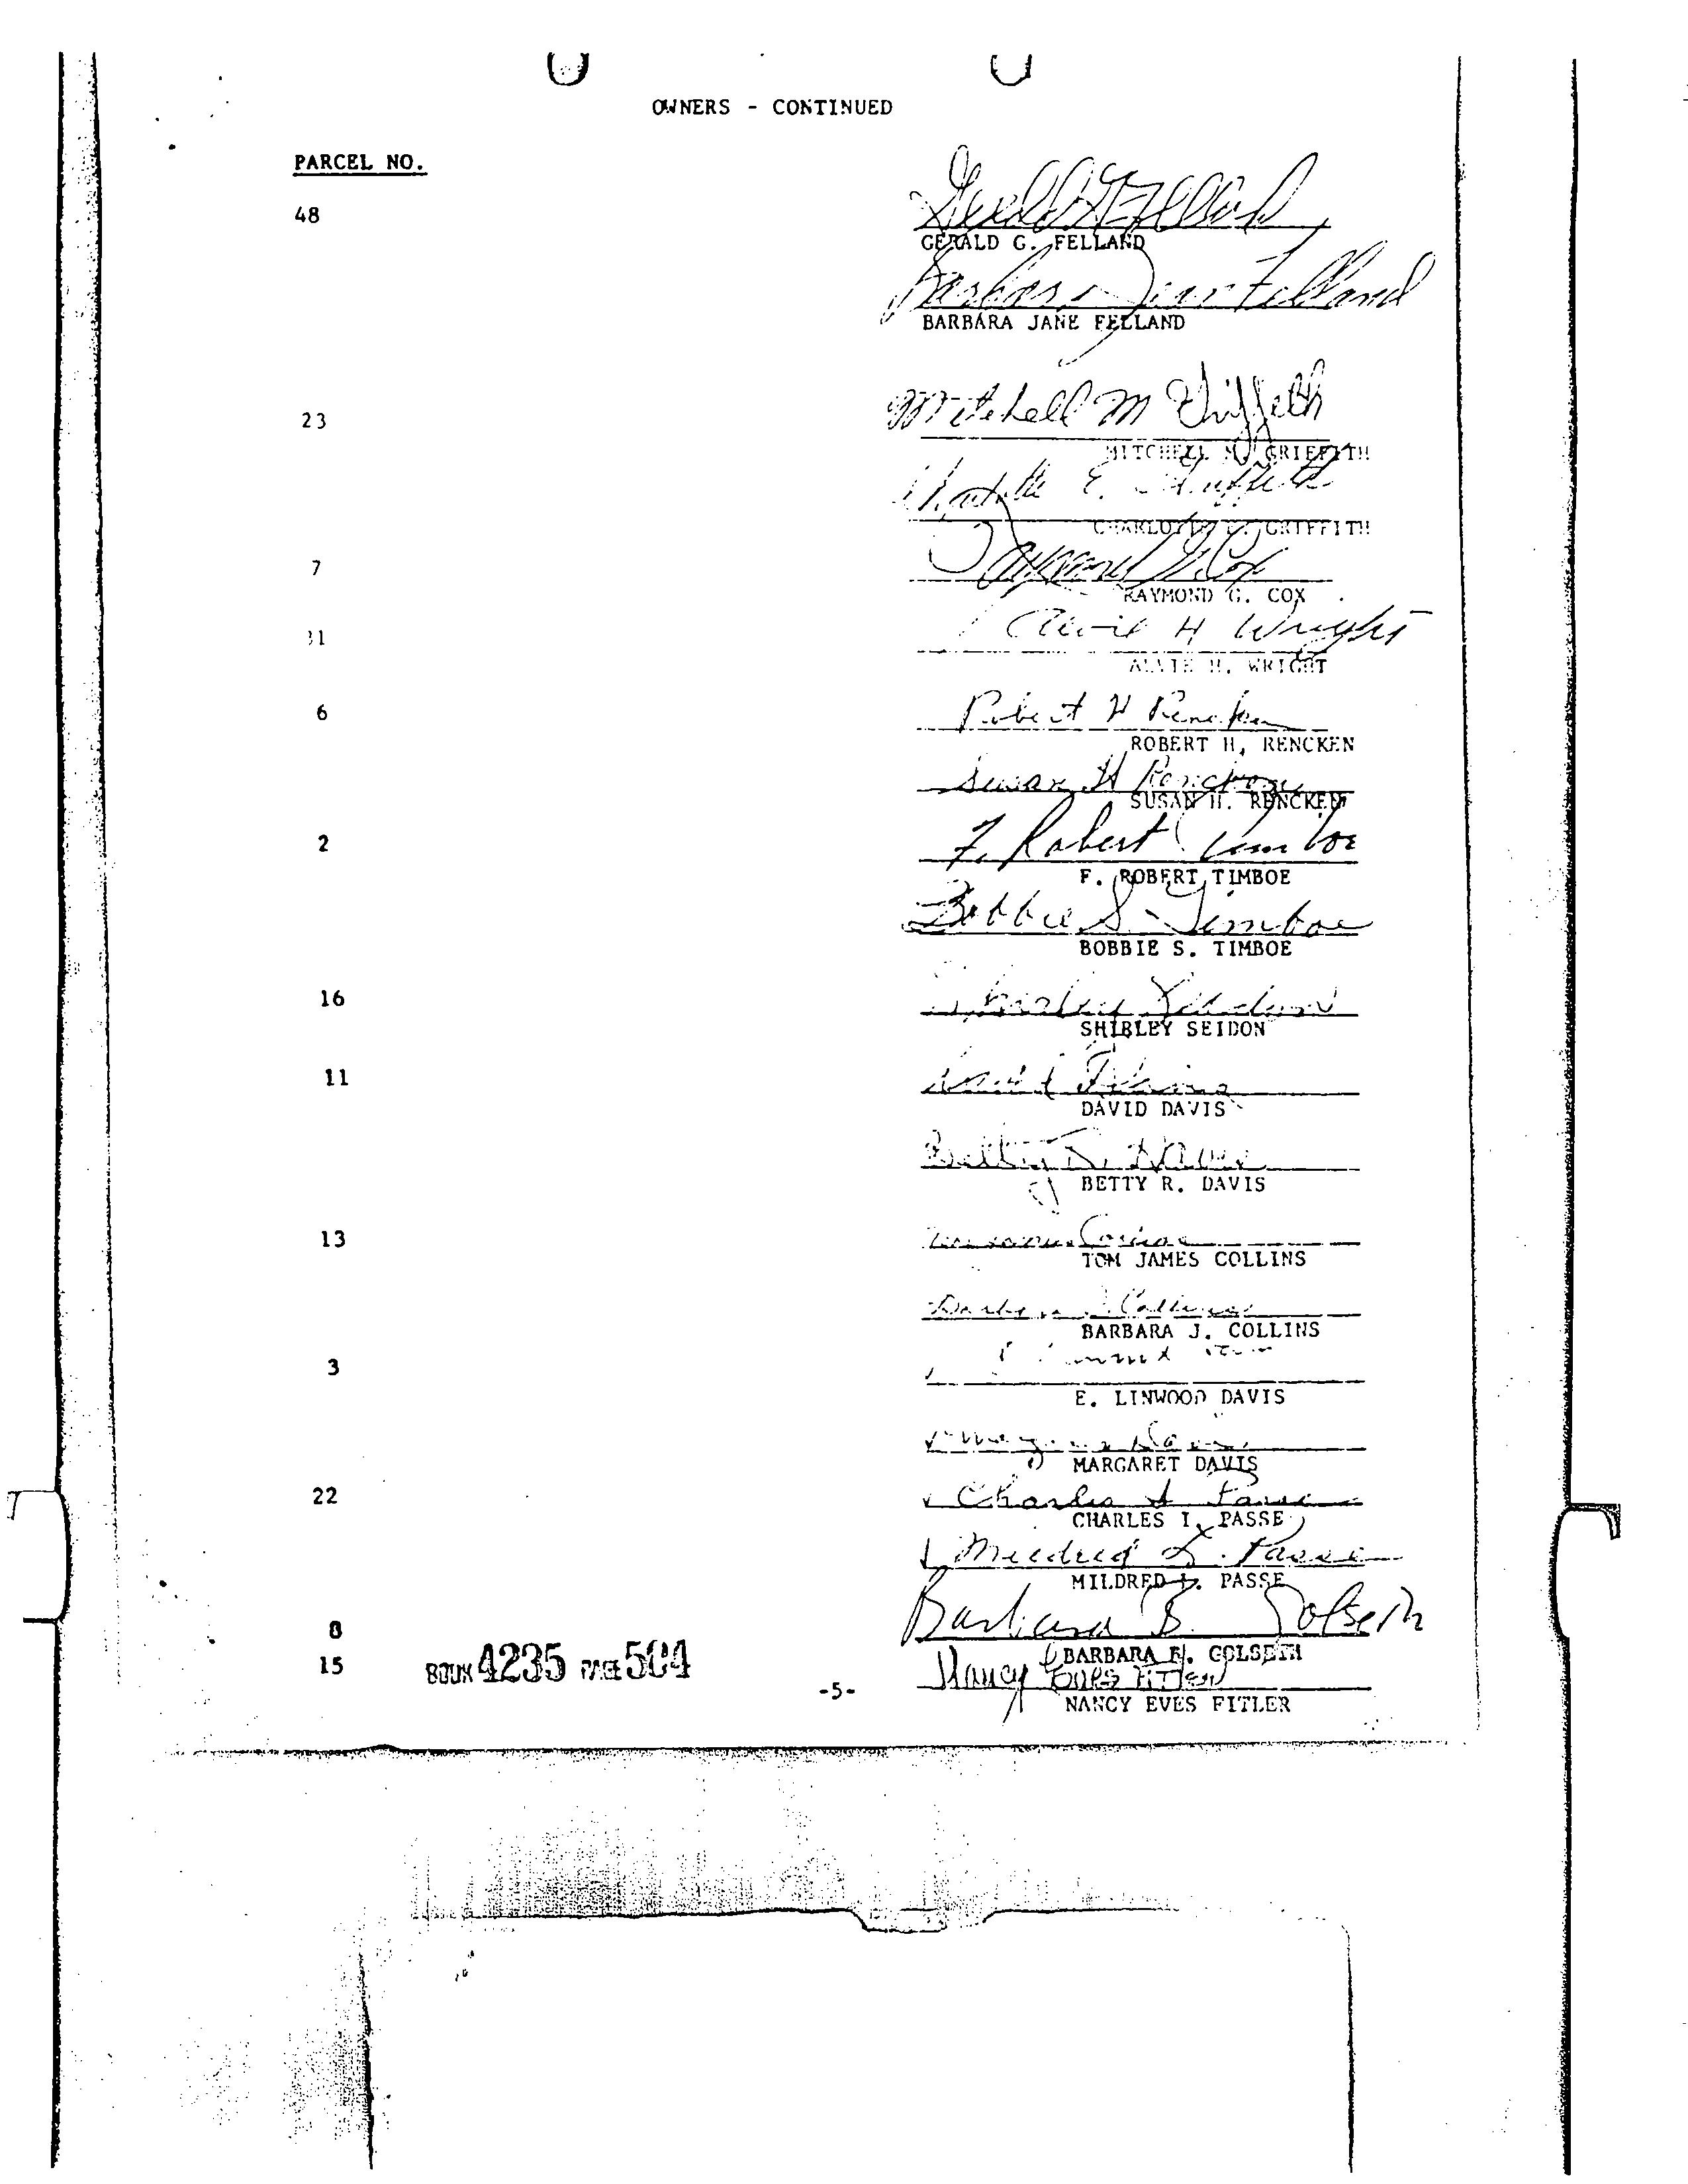 OWNERS - CONTINUED
PARCEL NO.
48
GERALD G. FELLAND
Barbara Jane Felland
BARBARA JANE FELLAND
Mitchell M Griffeth
23
MITCHELL M. GRIFFITH
Charlotte E. Griffeth
CHARLOTTE E. GRIFFITH
Raymond G. Cox
7
RAYMOND G. COX
Alvie H Wright
31
ALVIE H. WRIGHT
Robert H Rencken
6
ROBERT H. RENCKEN
Susan H Rencken
SUSAN H. RENCKEN
F. Robert Timboe
2
F. ROBERT TIMBOE
Bobbie S. Timboe
BOBBIE S. TIMBOE
16
Shirley
SHIRLEY SEIDON
11
David
DAVID DAVIS
Betty R. Davis
BETTY R. DAVIS
13
Collins
TOM JAMES COLLINS
Barbara J. Collins
BARBARA J. COLLINS
3
E. LINWOOD DAVIS
Margaret Davis
MARGARET DAVIS
22 Charles I Passe
CHARLES I. PASSE
Mildred L. Passe
MILDRED L. PASSE
8 Barbara B. Golseth
BARBARA B. GOLSETH
15 BOOK 4235 PAGE 504 Nancy Eves Fitler
-5-
NANCY EVES FITLER